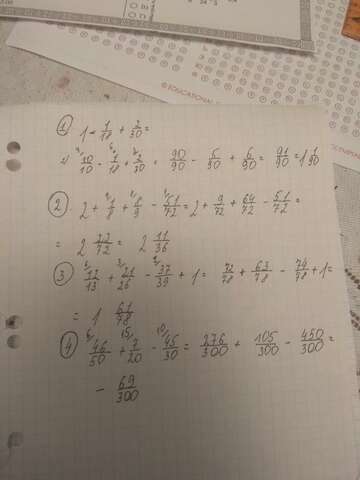 EDUCATIONAL
① 1 - 1/18 + 2/30 =
10/10 - 1/18 + 2/30 = 90/90 - 5/90 + 6/90 = 91/90 = 1 1/90
② 2 + 1/8 + 8/9 - 51/72 = 2 + 9/72 + 64/72 - 51/72 =
= 2 22/72 = 2 11/36
③ 12/13 + 21/26 - 37/39 + 1 = 72/78 + 63/78 - 74/78 + 1 =
= 1 61/78
④ 46/50 + 7/20 - 45/30 = 276/300 + 105/300 - 450/300 =
- 69/300